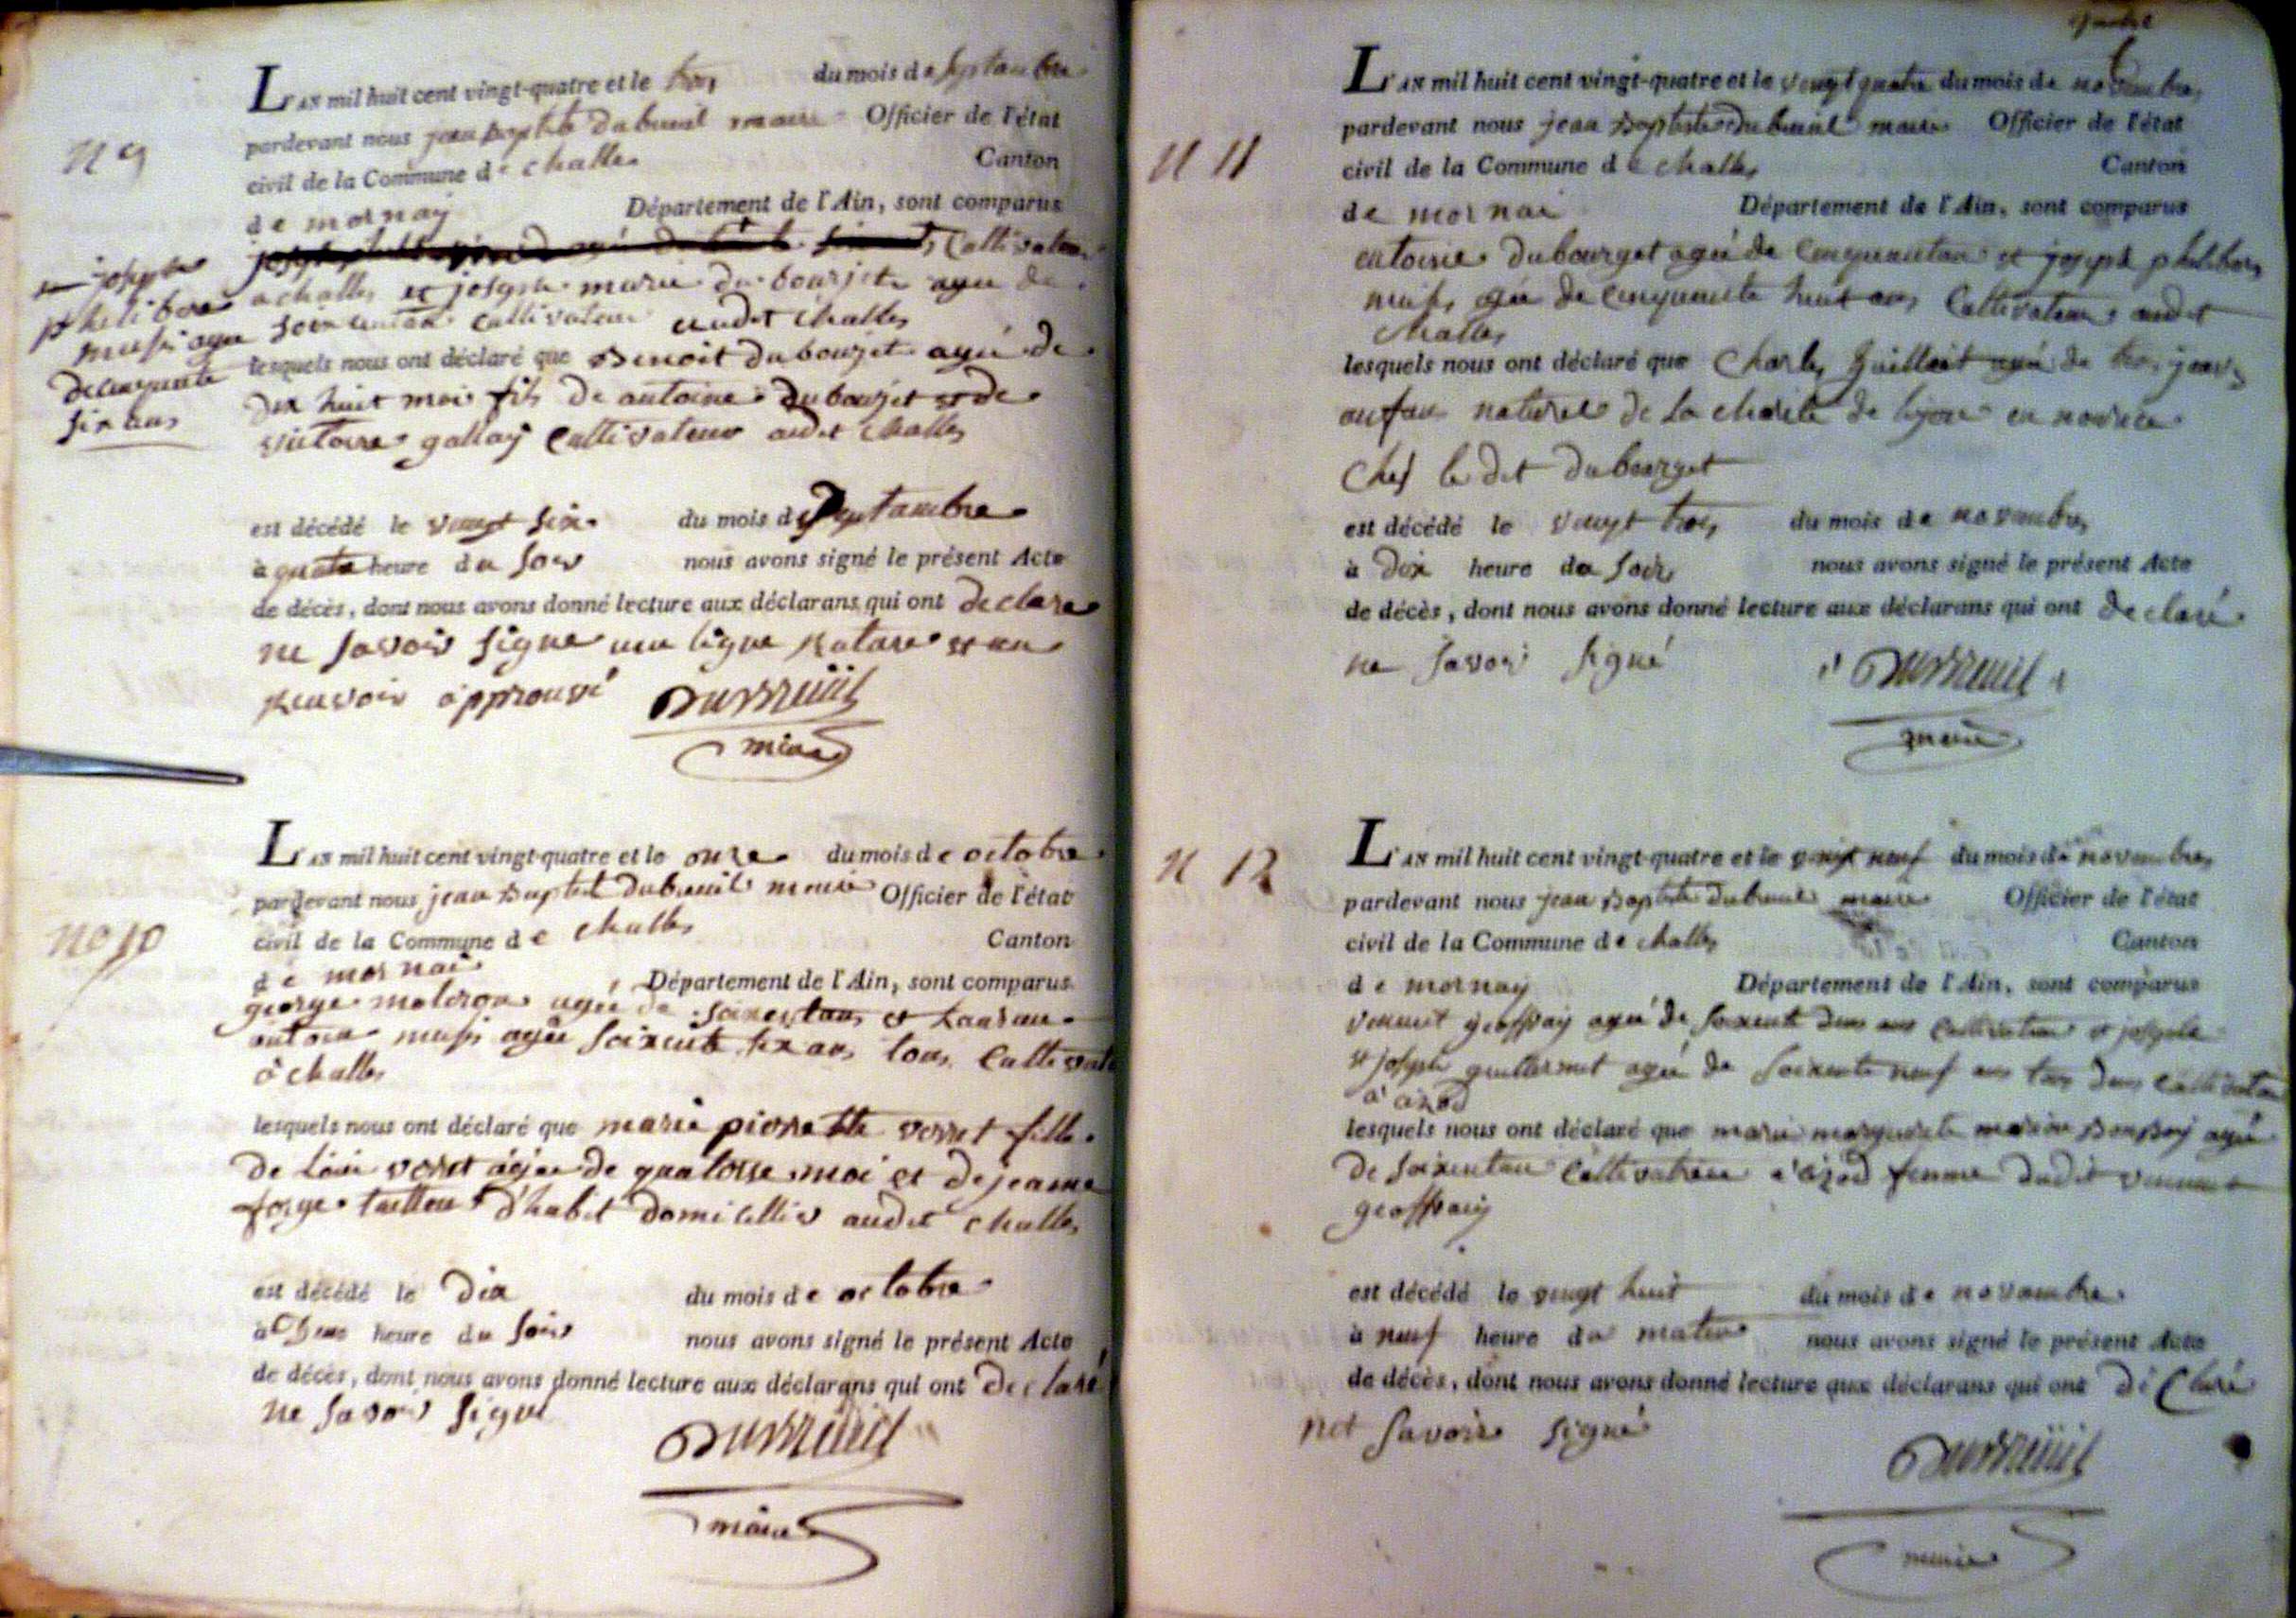 N 9
L'AN mil huit cent vingt-quatre et le trois du mois de septambre
pardevant nous jean baptiste dubreuil maire Officier de l'état
civil de la Commune de challes Canton
de mornay Département de l'Ain, sont comparus
cultivateur
a challes et joseph marie du bourjet agée de
soixantan cultivateur audit challes
joseph
philibert
musi agee
de cinquante
six ans
lesquels nous ont déclaré que Benoit dubourjet agé de
dix huit moi fils de antoine dubourjet et de
victoire gallay cultivateur audit challes
est décédé le vingt six du mois de septambre
à quatre heure du soir nous avons signé le présent Acte
de décès, dont nous avons donné lecture aux déclarans qui ont declare
ne savoir signe une ligne rature et un
renvoir approuvé Dubreüil
maire
No 10
L'AN mil huit cent vingt-quatre et le onze du mois de octobre
pardevant nous jean baptist dubreuil maire Officier de l'état
civil de la Commune de challes Canton
de mornai Département de l'Ain, sont comparus
george moleron agée de soixentans et
antoine musi agée soixente six ans tous
à challes
lesquels nous ont déclaré que marie pierrette verret fille
de loui veret agée de quatorse moi et de jeanne
forge tailleur d'habit domicillis audit challes
est décédé le dix du mois de octobre
à heure du soir nous avons signé le présent Acte
de décès, dont nous avons donné lecture aux déclarans qui ont declaré
ne savoir signé
Dubreüil
maire
N 11
L'AN mil huit cent vingt-quatre et le vingt quatre du mois de novembre
pardevant nous jean baptiste dubreuil maire Officier de l'état
civil de la Commune de challes Canton
de mornai Département de l'Ain, sont comparus
entoine dubourget agé de cinquantan et joseph philiber
musi agée de cinquante huit ans cultivateur audit
challes
lesquels nous ont déclaré que Charles Guilloit agé de trois jours
anfan naturel de la charite de lyon en nourice
Chef le dit dubourget
est décédé le vingt trois du mois de novambre
à dix heure du soir nous avons signé le présent Acte
de décès, dont nous avons donné lecture aux déclarans qui ont declaré
ne savoir signé
Dubreuil
maire
N 12
L'AN mil huit cent vingt-quatre et le vingt neuf du mois de novembre
pardevant nous jean baptiste dubreuil maire Officier de l'état
civil de la Commune de challes Canton
de mornay Département de l'Ain, sont comparus
vincent geoffray agé de soixente deux ans cultivateur et joseph
et joseph guillermet agé de soixente neuf ans tous deux cultivateur
à
lesquels nous ont déclaré que marie marguerite agée
de soixentan cultivatrice femme dudit vincent
geoffray
est décédé le vingt huit du mois de novambre
à neuf heure du matin nous avons signé le présent Acte
de décès, dont nous avons donné lecture aux déclarans qui ont déclaré
net savoir signé
Dubreüil
maire